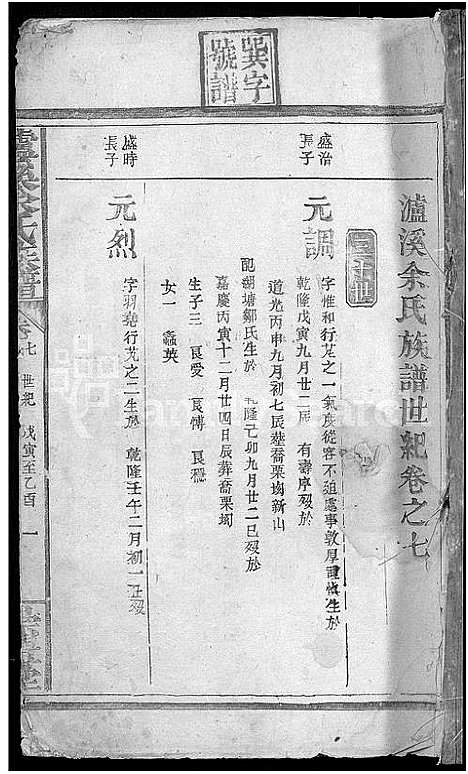 巽字
號譜
瀘溪余氏族譜世紀卷之七
三十世
盛治
長子
元調
字惟和行芃之一氣度從容不迫處事敦厚謹慎生於
乾隆戊寅九月廿二辰 有壽序歿於
道光丙申九月初七辰葬喬栗坳新山
配胡塘鄒氏生於 乾隆己卯九月廿二巳歿於
嘉慶丙寅十二月廿四日辰葬喬栗坳
生子三 良愛 良博 良穩
女一 蟸英
盛時
長子
元烈
字羽堯行芃之二生於 乾隆壬午二月初一丑歿
余氏族譜
卷七 世紀 戊寅至乙酉 一
堂